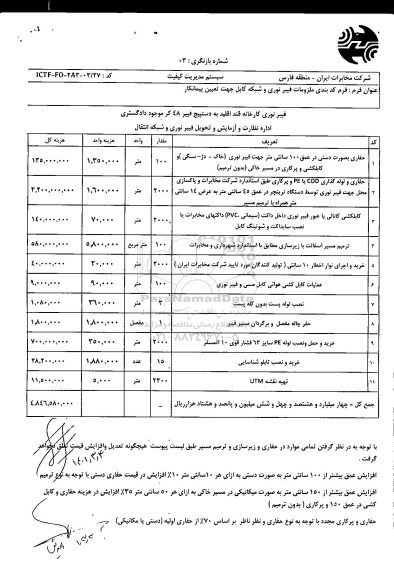 شماره بازنگری : ۰۳
شرکت مخابرات ایران - منطقه فارس
سیستم مدیریت کیفیت
کد : ICTF-FO-283-02/27
عنوان فرم : فرم کد بندی ملزومات فیبر نوری و شبکه کابل جهت تعیین پیمانکار
فیبر نوری کارخانه قند اقلید به دستپیچ فیبر ۴۸ کر موجود دادگستری
اداره نظارت و آزمایش و تحویل فیبر نوری و شبکه انتقال
کد تعریف مقدار واحد هزینه واحد هزینه کل
۱ حفاری بصورت دستی در عمق ۱۰۰ سانتی متر جهت فیبر نوری (خاک - دژ- سنگی )و کابلکشی و پرکاری در مسیر خاکی (بدون ترمیم) ۱۰۰ متر ۱,۳۵۰,۰۰۰ ۱۳۵,۰۰۰,۰۰۰
۲ حفاری و لوله گذاری COD یا PE و پرکاری طبق استاندارد شرکت مخابرات و پاکسازی محل جهت فیبر نوری توسط دستگاه ترینچر در عمق ۴۵ سانتی متر به عرض ۱۴ سانتی متر همراه با ترمیم مسیر ۲۰۰۰ متر ۱,۶۰۰,۰۰۰ ۳,۲۰۰,۰۰۰,۰۰۰
۳ کابلکشی کانالی یا عبور فیبر نوری داخل داکت (سیمانی ،PVC) داکتهای مخابرات با نصب سابداکت و شوتینگ کابل ۲۰۰۰ متر ۷۰,۰۰۰ ۱۴۰,۰۰۰,۰۰۰
۴ ترمیم مسیر آسفالت با زیرسازی مطابق با استاندارد شهرداری و مخابرات ۱۰۰ متر مربع ۵,۸۰۰,۰۰۰ ۵۸۰,۰۰۰,۰۰۰
۵ خرید و اجرای نوار اخطار ۱۰ سانتی ( تولید کنندگان مورد تایید شرکت مخابرات ایران ) ۲۰۰۰ متر ۲۰,۰۰۰ ۴۰,۰۰۰,۰۰۰
۶ عملیات کابل کشی هوائی کابل مسی و فیبر نوری ۱۰۰ متر ۹۰,۰۰۰ ۹,۰۰۰,۰۰۰
۷ نصب لوله پست بدون کله پست ۳ متر ۳۶۰,۰۰۰ ۱,۰۸۰,۰۰۰
۸ حفر چاله مفصل و برگردان مسیر فیبر ۱ مفصل ۱,۸۰۰,۰۰۰ ۱,۸۰۰,۰۰۰
۹ خرید و حمل ونصب لوله PE سایز ۶۳ فشار قوی ۱۰ اتمسفر ۲۰۰۰ متر ۳۵۰,۰۰۰ ۷۰۰,۰۰۰,۰۰۰
۱۰ خرید و نصب تابلو شناسایی ۱۵ عدد ۱,۸۸۰,۰۰۰ ۲۸,۲۰۰,۰۰۰
۱۱ تهیه نقشه UTM ۲۳۰۰ متر ۵,۰۰۰ ۱۱,۵۰۰,۰۰۰
جمع کل - چهار میلیارد و هشتصد و چهل و شش میلیون و پانصد و هشتاد هزارریال _ ۴,۸۴۶,۵۸۰,۰۰۰
با توجه به در نظر گرفتن تمامی موارد در حفاری و زیرسازی و ترمیم مسیر طبق لیست پیوست هیچگونه تعدیل وافزایش قیمت تعلق نخواهد گرفت.
افزایش عمق بیشتر از ۱۰۰ سانتی متر به صورت دستی به ازای هر ۱۰سانتی متر ۱۰٪ افزایش در قیمت حفاری دستی با توجه به نوع ترمیم
افزایش عمق بیشتر از ۱۵۰ سانتی متر به صورت میکانیکی در مسیر خاکی به ازای هر ۵۰ سانتی متر ۳۵٪ افزایش در هزینه حفاری و کابل کشی در عمق ۱۵۰ و پرکاری ( بدون ترمیم )
حفاری و پرکاری مجدد با توجه به نوع حفاری و نظر ناظر بر اساس ۷۰٪ از حفاری اولیه (دستی یا مکانیکی)
ParsNamadData